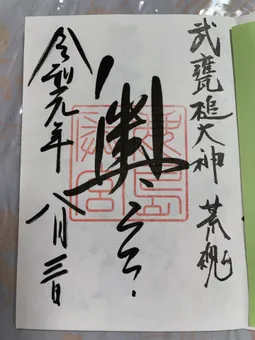 武甕槌大神 荒魂
奥宮
令和元年 八月三日